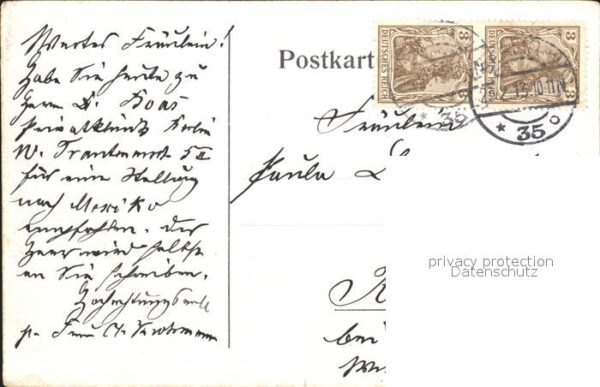 Wertes Fräulein!
Habe Sie heute zu
Herrn Dr. Boas
Privatklinik Berlin
W.
für eine Stellung
nach Mexiko
empfohlen. Der
Herr wird selbst
an Sie schreiben.
Hochachtungsvoll
p. Frau
Postkart
DEUTSCHES REICH
3
3
DEUTSCHES REICH
3
3
13.10-11V
* 35
* 35 o
Fräulein
Paula
bei
privacy protection
Datenschutz